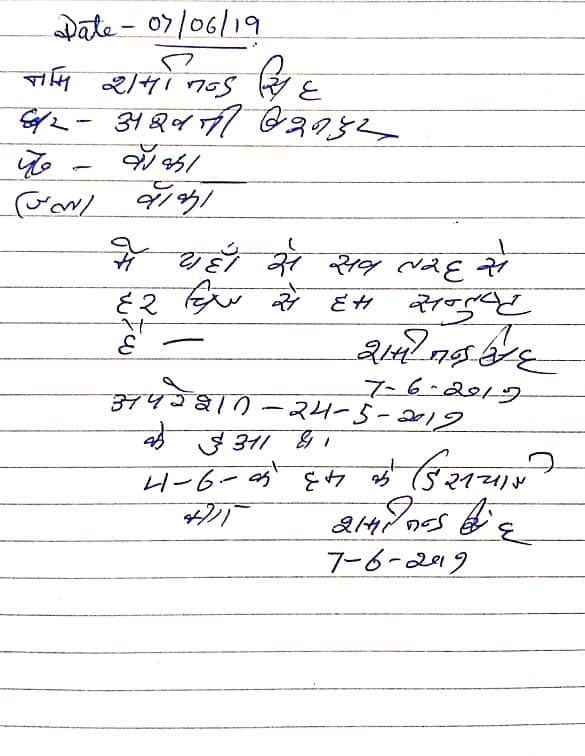 Date - 07/06/19
नाम शर्मा नन्द सिंह
घर -
पो० - बाँका
जिला बाँका
मैं यहाँ से सब तरह से
हर चिज से हम सन्तुष्ट
हैं —
शर्मा नन्द सिंह
7-6-2019
अपरेशन - 24-5-2019
को हुआ था
4-6-को हम को डिसचार्ज
शर्मा नन्द सिंह
7-6-2019